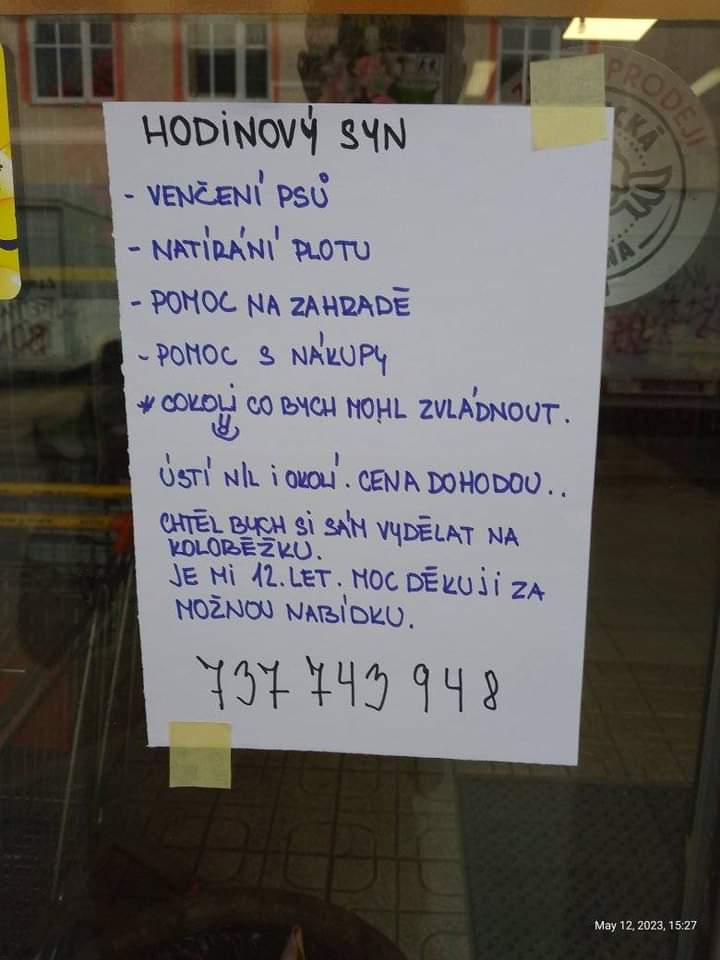 PRODEJI
HODINOVÝ SYN
- VENČENÍ PSŮ
- NATÍRÁNÍ PLOTU
- POMOC NA ZAHRADĚ
- POMOC S NÁKUPY
* COKOLI CO BYCH MOHL ZVLÁDNOUT.
ÚSTÍ N/L i OKOLÍ. CENA DOHODOU..
CHTĚL BYCH SI SÁM VYDĚLAT NA
KOLOBĚŽKU.
JE MI 12. LET. MOC DĚKUJI ZA
MOŽNOU NABÍDKU.
737 743 948
May 12, 2023, 15:27